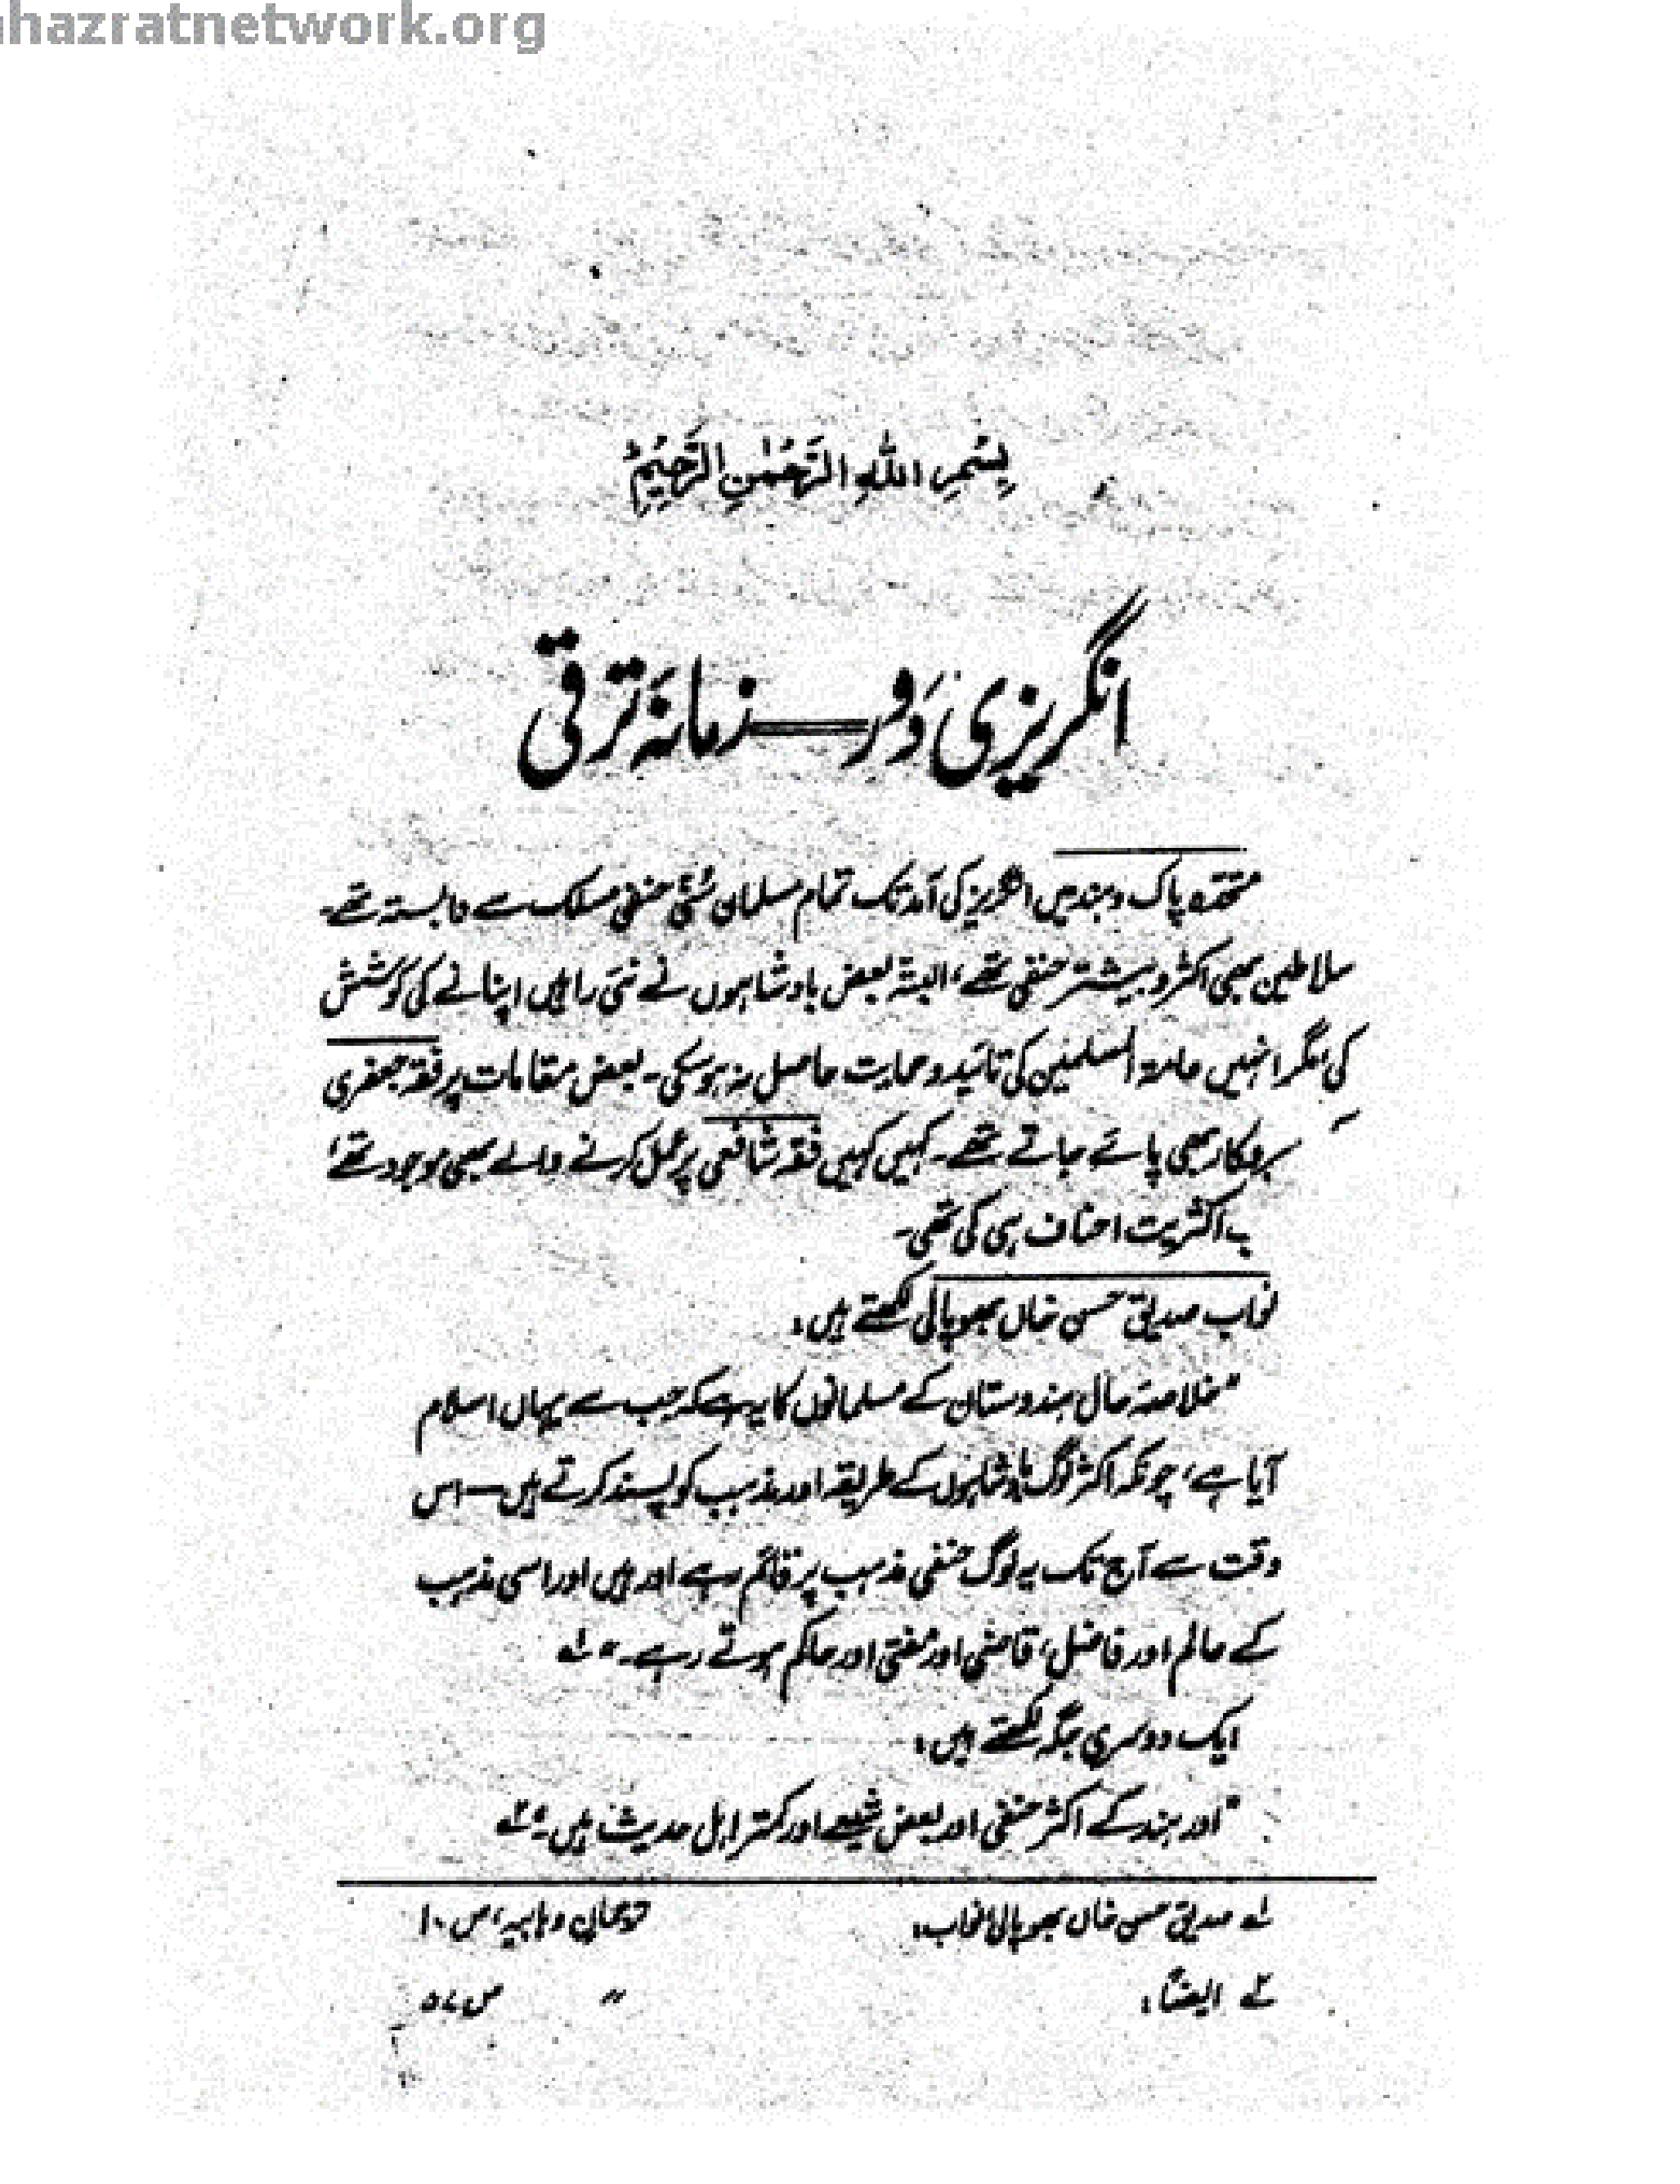 ahazratnetwork.org
بِسْمِ اللّٰهِ الرَّحْمٰنِ الرَّحِيْمِ
انگریزی دَور — زمانۂ ترقی
متحدہ پاک و ہند میں انگریز کی آمد تک تمام مسلمان سُنّی حنفی مسلک سے وابستہ تھے۔
سلاطین بھی اکثر و بیشتر حنفی تھے، البتہ بعض بادشاہوں نے نئی راہیں اپنانے کی کوشش
کی مگر انہیں عامۃ المسلمین کی تائید و حمایت حاصل نہ ہو سکی۔ بعض مقامات پر فقہ جعفری
پیروکار بھی پائے جاتے تھے۔ کہیں کہیں فقہ شافعی پر عمل کرنے والے بھی موجود تھے،
اکثریت احناف ہی کی تھی۔
نواب صدیق حسن خاں بھوپالی لکھتے ہیں:
"خلاصہ حال ہندوستان کے مسلمانوں کا یہ ہے کہ جب سے یہاں اسلام
آیا ہے، چونکہ اکثر لوگ بادشاہوں کے طریقہ اور مذہب کو پسند کرتے ہیں — اس
وقت سے آج تک یہ لوگ حنفی مذہب پر قائم رہے اور ہیں اور اسی مذہب
کے عالم اور فاضل، قاضی اور مفتی اور حاکم ہوتے رہے۔" ۱؎
ایک دوسری جگہ لکھتے ہیں:
"اور ہند کے اکثر حنفی اور بعض شیعے اور کمتر اہل حدیث ہیں۔" ۲؎
۱؎ صدیق حسن خاں بھوپالی نواب: ترجمانِ وہابیہ، ص ۱۰
۲؎ ایضاً: " ص ۵۷